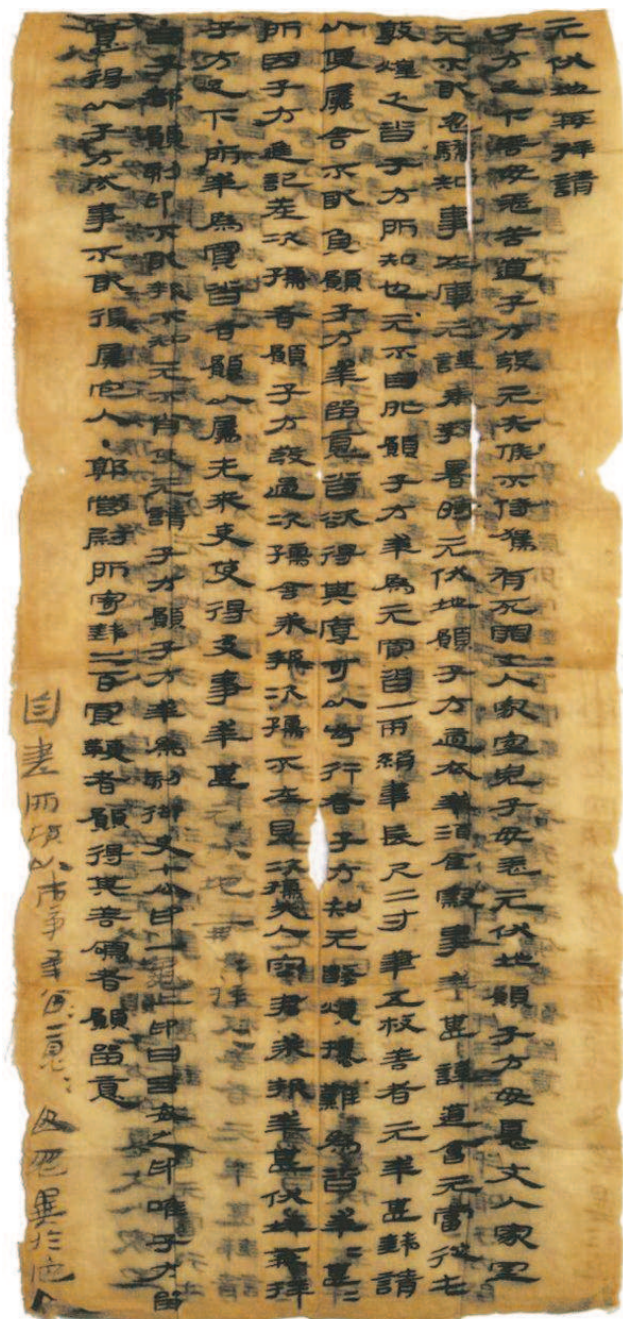 元伏地再拜請
子方足下善毋恙苦道子方發元失候不侍駕有死罪丈人家室兒子毋恙元伏地願子方毋憂丈人家室
元不敢忽驕知事在庫元謹奉教暑時元伏地願子方適衣幸酒食察事幸甚謹道會元當從屯
敦煌乏沓子方所知也元不自外願子方幸為元買沓一兩絹韋長尺二寸筆五枚善者元幸甚錢請
以便屬舍不敢負願子方幸留意沓欲得其厚可以步行者子方知元數煩擾難為沓幸=甚=
所因子方進記差次孺者願子方發過次孺舍求報次孺不在見次孺夫人容君求報幸甚伏地再拜
子方足下所幸為買沓者願以屬先來吏使得及事幸甚元伏地再拜再拜
呂子都願刻印不敢報不知元不肖使元請子方願子方幸為刻御史七分印一龜上印曰呂安之印唯子方留
意得以子方成事不敢復屬它人・郭營尉所寄錢二百買鞭者願得其善鳴者願留意
自書所願以市事幸留=意=毋忽異於它人